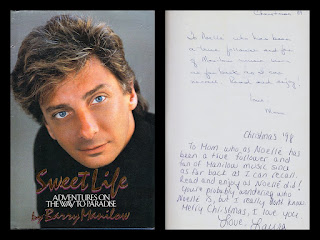 Sweet Life
ADVENTURES ON
THE WAY TO PARADISE
by Barry Manilow
Christmas
To Noelle who has been
a true follower and fan
of Manilow music since
as far back as I can
recall. Read and enjoy!
Love,
Mum
Christmas '98
To Mum who as Noelle has
been a true follower and
fan of Manilow music since
as far back as I can recall.
Read and enjoy as Noelle did!
(you're probably wondering who
Noelle is, but I really don't know
Merry Christmas, I love you
Love Laura